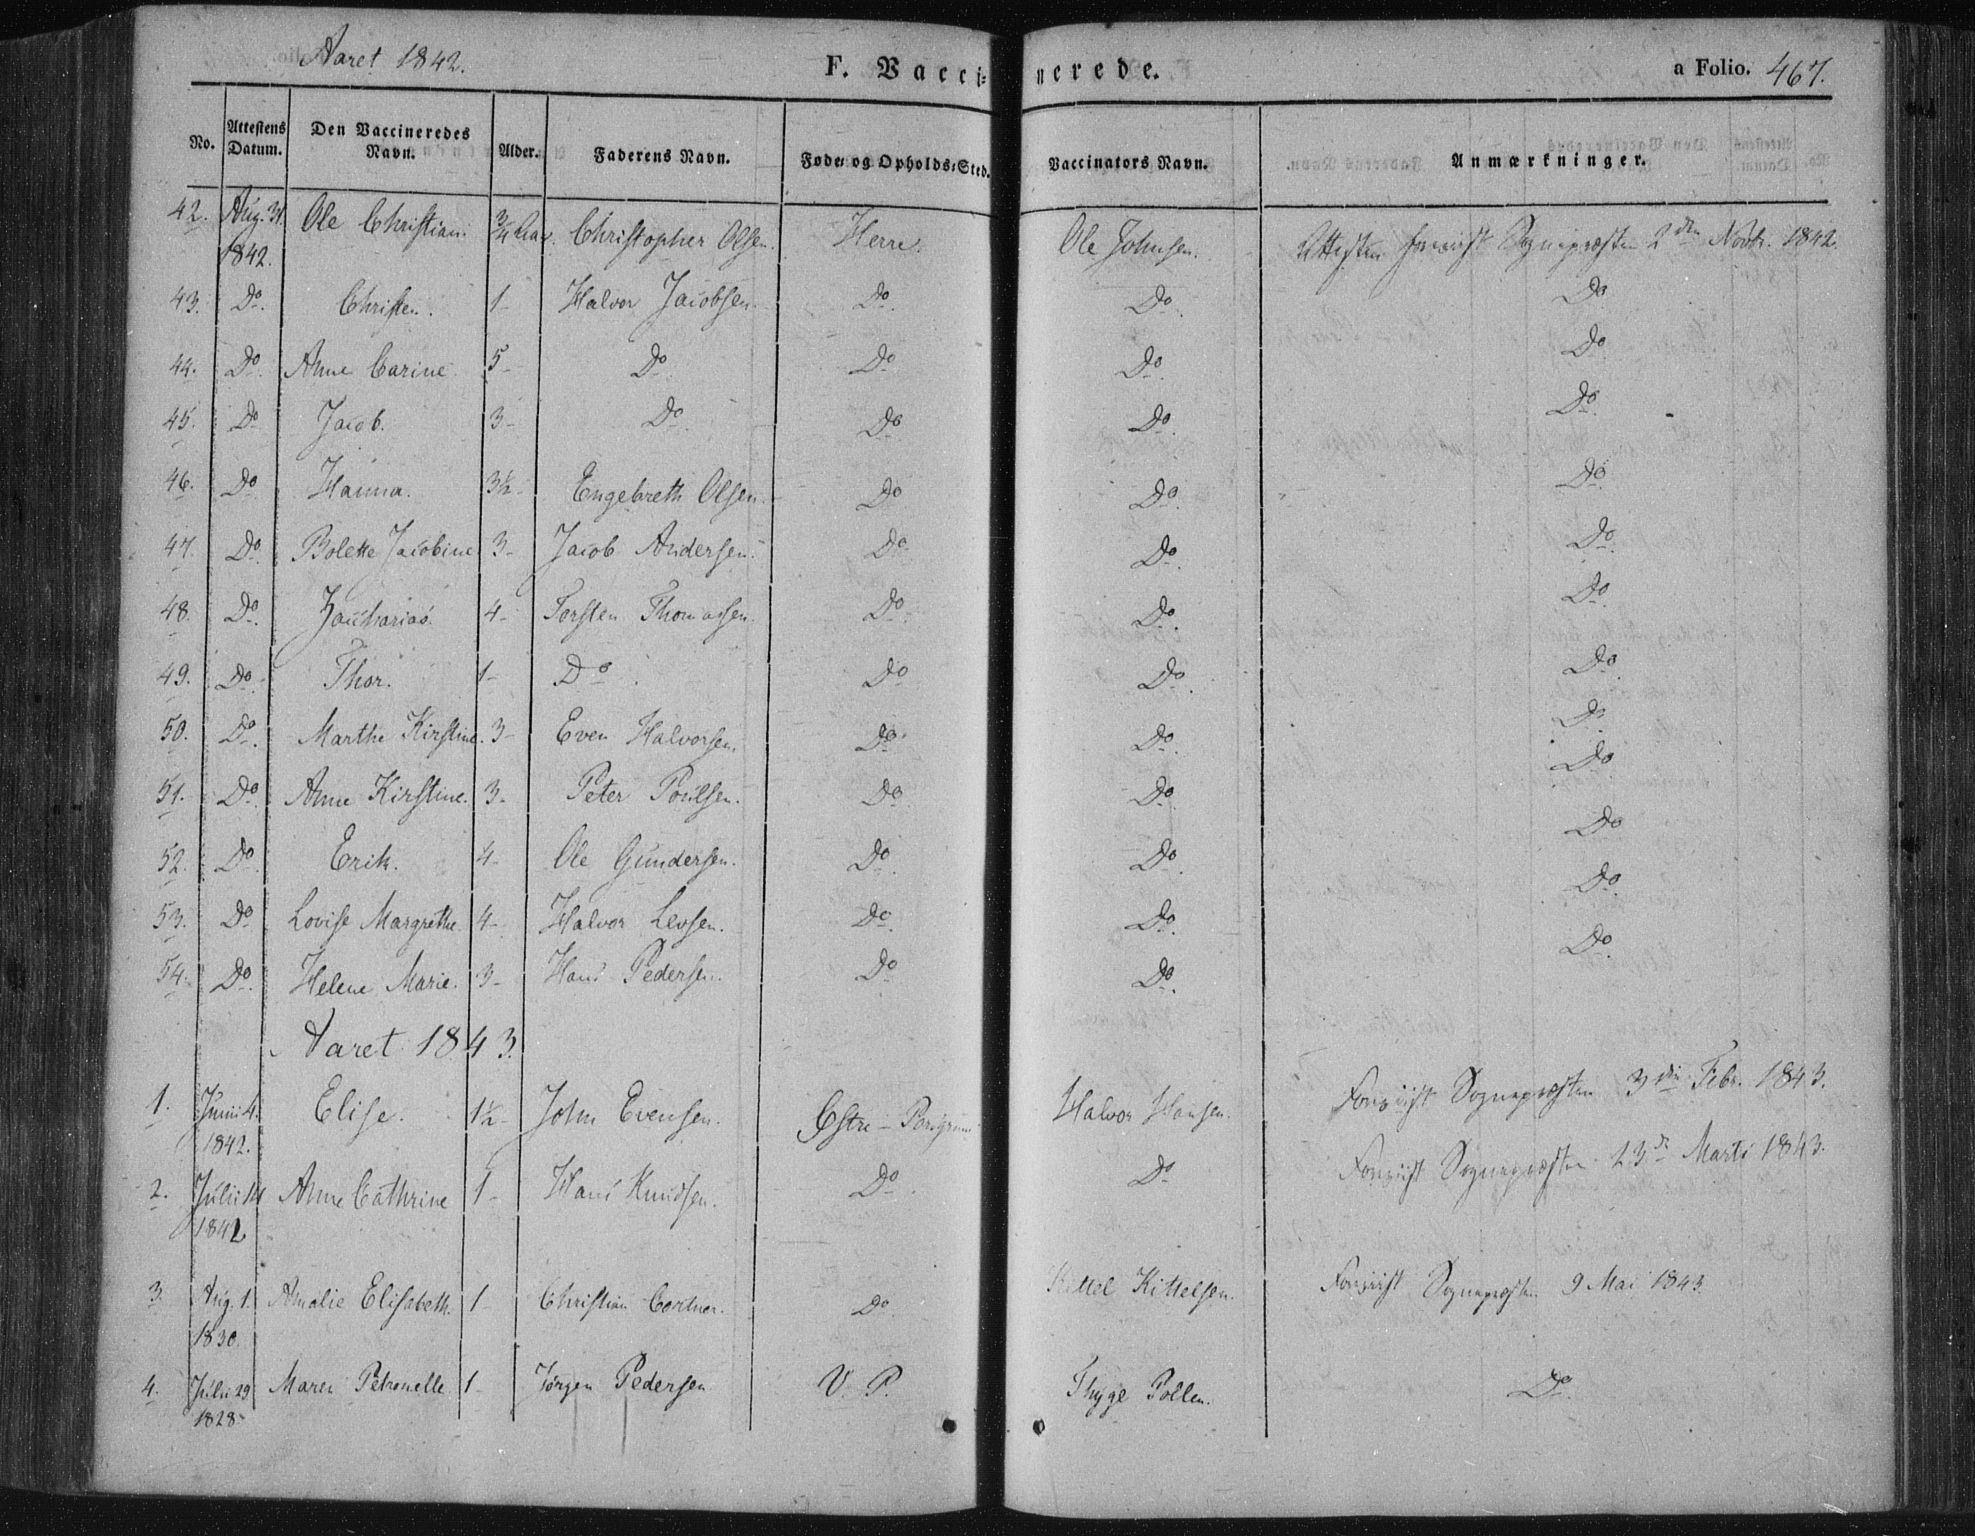 Aaret 1842.
F. Vaccinerede.
a Folio. 467.
No. Attestens Datum. Den Vaccineredes Navn. Alder. Faderens Navn. Føde- og Opholds-Sted. Vaccinators Navn. Anmærkninger.
42. Aug. 31. 1842. Ole Christian. 3/4 Aar. Christopher Olsen. Herre. Ole Johnsen. Attesten foreviist Sognepræsten 2den Novbr. 1842.
43. Do. Christen. 1- Halvor Jacobsen. Do. Do. Do
44. Do. Anne Carine 5- Do Do Do. Do
45. Do Jacob. 3- Do. Do Do. Do.
46. Do Hanna. 3½- Engebreth Olsen. Do Do. Do.
47. Do Bolette Jacobine 3- Jacob Andersen. Do. Do. Do.
48. Do. Zacharias. 4- Torsten Thomassen. Do. Do. Do.
49. Do. Thor. 1- Do. Do Do. Do.
50. Do. Marthe Kirstine. 3- Even Halvorsen. Do. Do. Do.
51. Do. Anne Kirstine. 3- Peter Poulsen. Do Do. Do
52. Do. Erik. 4- Ole Gundersen. Do. Do. Do
53. Do Lovise Margrethe. 4- Halvor Levsen. Do. Do. Do.
54. Do. Helene Marie. 3- Hans Pedersen. Do Do. Do.
Aaret 1843.
1. Junii 4. 1842. Elise. 1½- John Evensen. Østre-Porsgrund Halvor Hansen. Foreviist Sognepræsten 3die Febr. 1843.
2. Julii 14 1842 Anne Cathrine 1- Hans Knudsen. Do. Do Foreviist Sognepræsten 23de Marts 1843.
3. Aug. 1. 1830. Amalie Elisabeth. 1- Christian Cortner. Do. Kittel Kittelsen. Foreviist Sognepræsten 9 Mai 1843.
4. Julii 29 1828- Maren Petronelle 1- Jörgen Pedersen V. P. Thyge Pollen. Do.